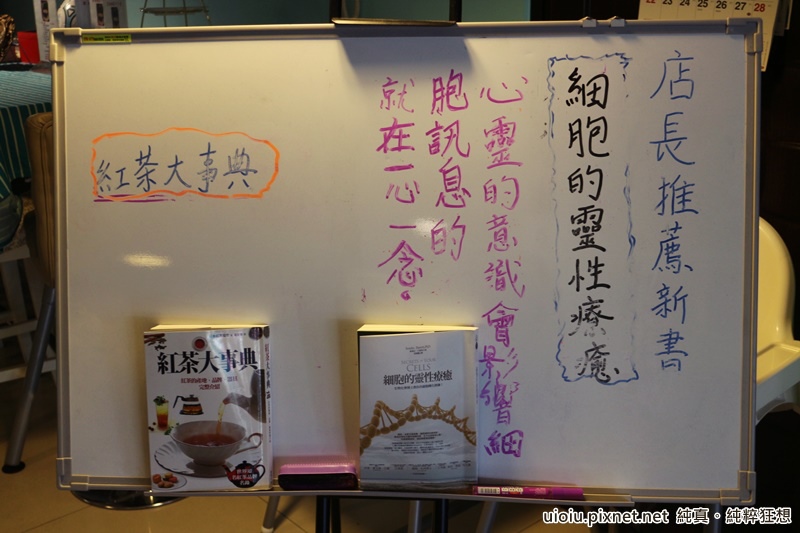 店長推薦新書
細胞的靈性療癒
心靈的意識會影響細
胞訊息的
就在一心一念。
紅茶大事典
紅茶大事典
CELLS
細胞的靈性療癒
22 23 24 25 26 27 28
uioiu.pixnet.net 純真。純粹狂想